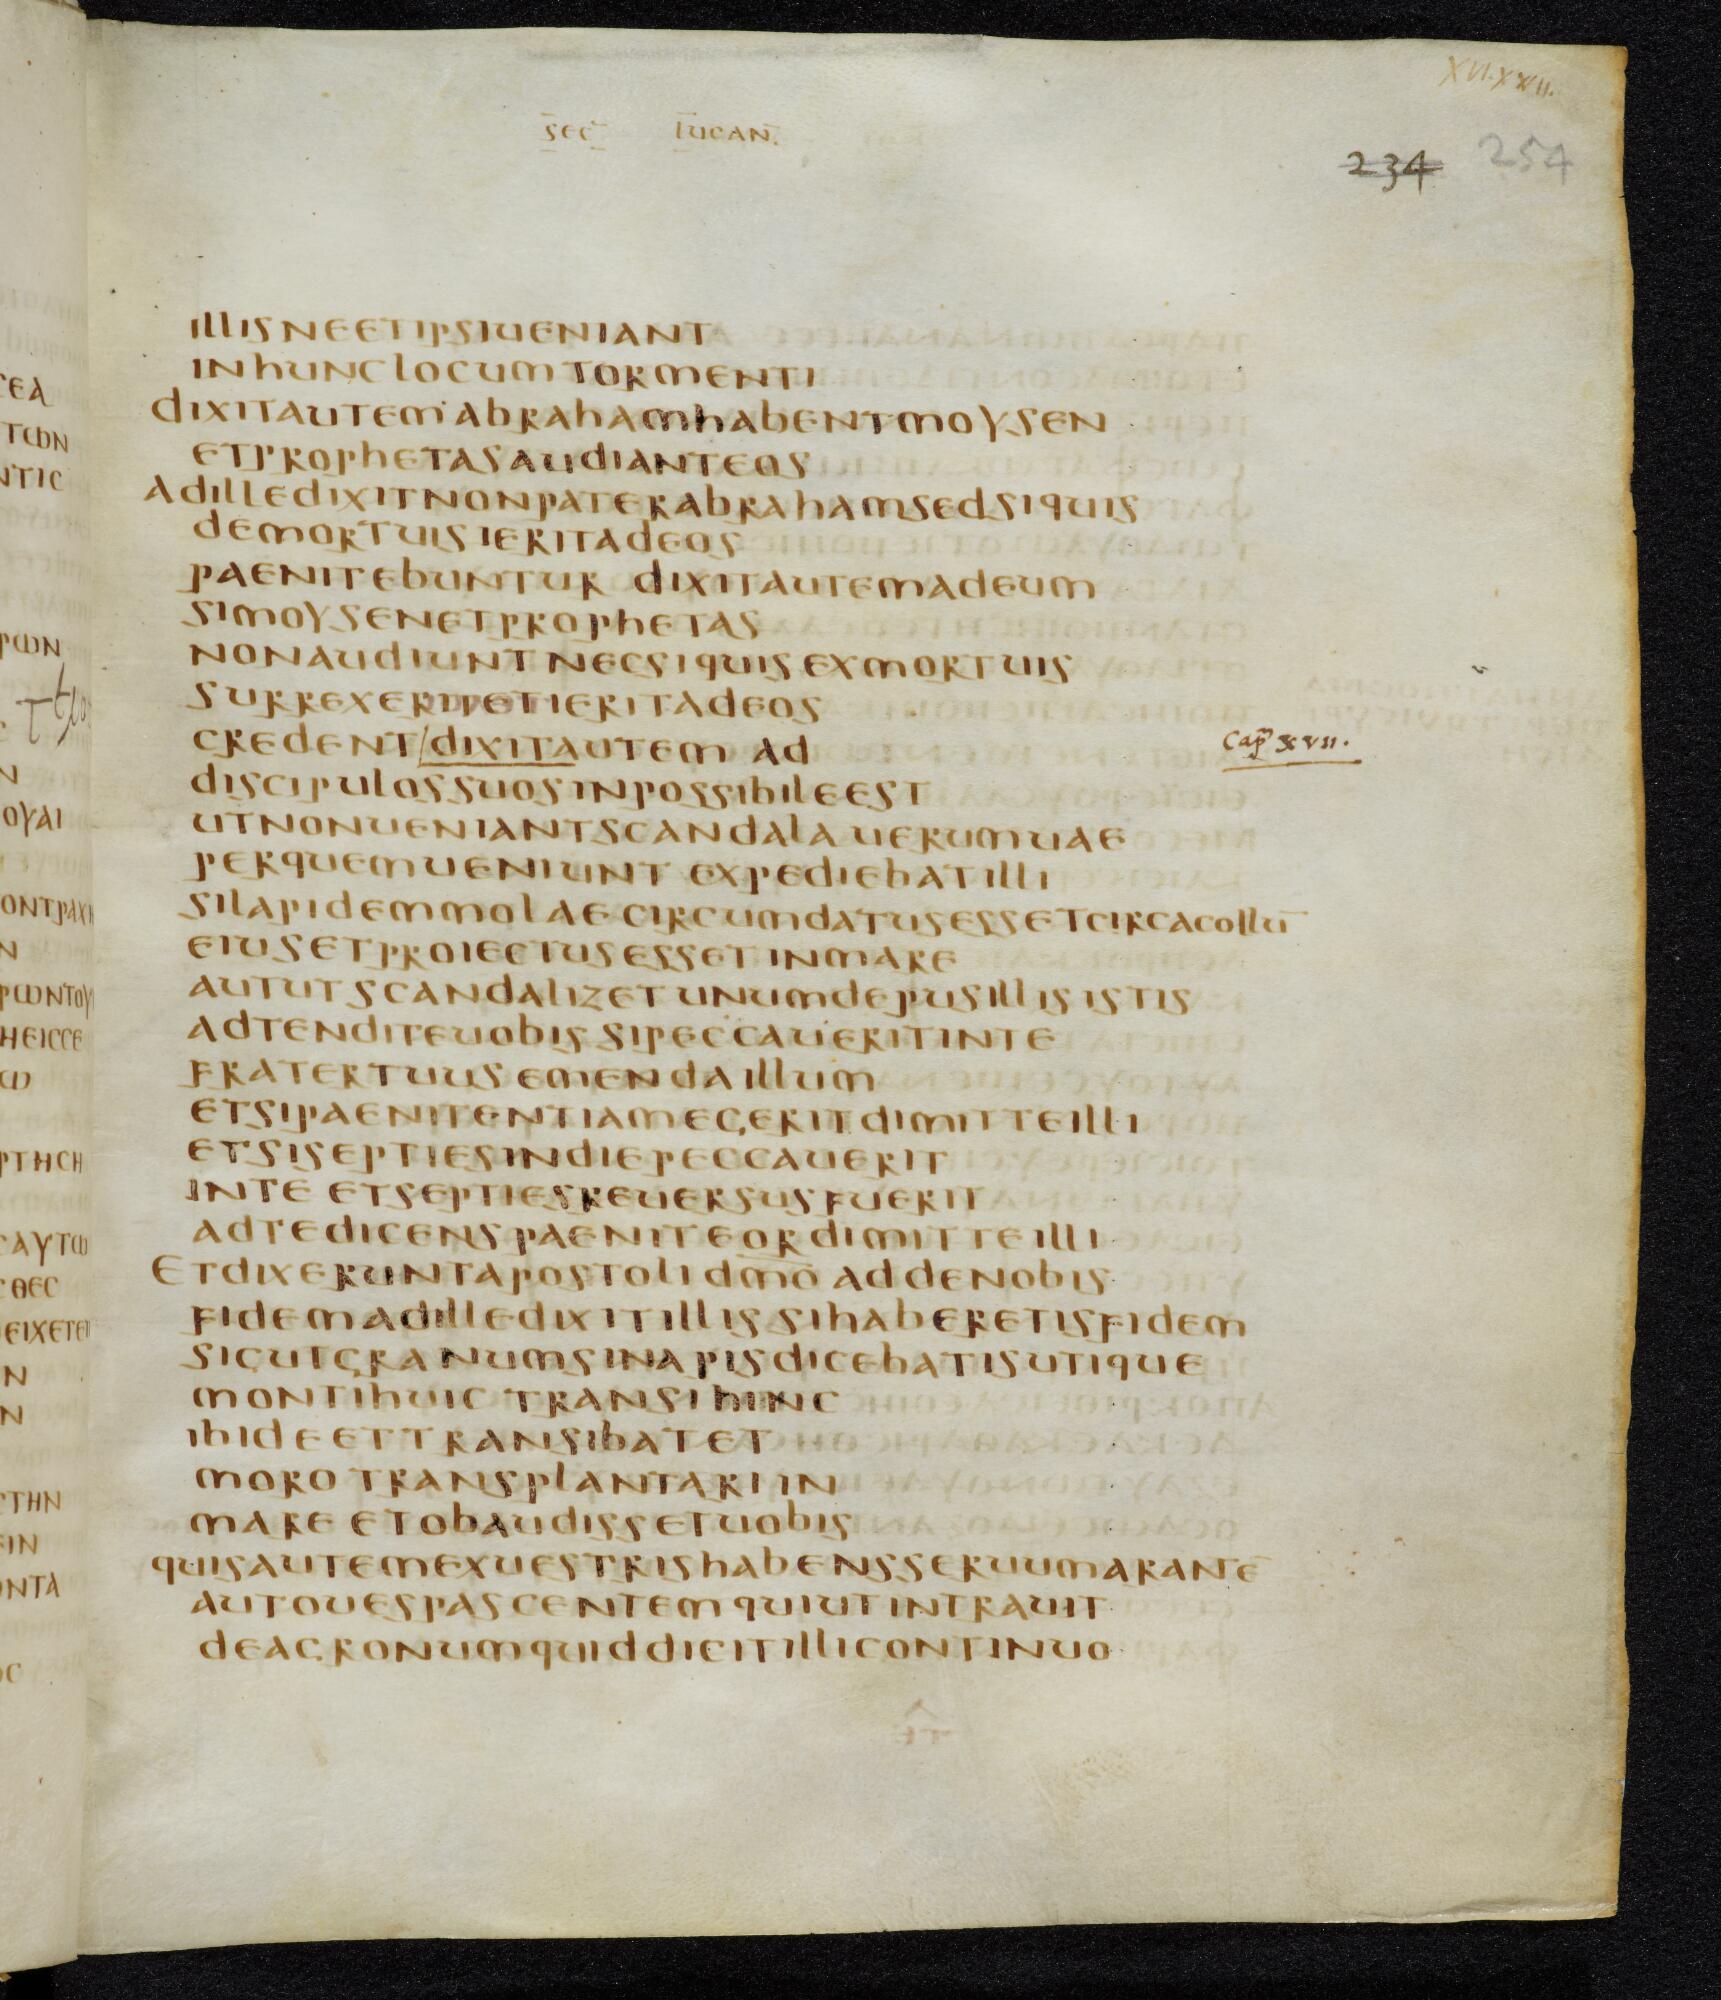 XVI. XVII.
sec lucan.
234 254
illisneetipsiueniant
inhunclocumtormenti
dixitautemabrahamhabentmoysen
etprophetasaudianteos
adilledixitnonpaterabrahamsedsiquis
demortuisieritadeos
paenitebuntur dixitautemadeum
simoysenetprophetas
nonaudiuntnecsiquisexmortuis
surrexeritetieritadeos
credent/dixitautem ad
Cap xvii.
discipulossuosinpossibileest
utnonueniantscandala uerumuae
perquemueniunt expediebatilli
silapidemmolae circumdatusessetcircacollū
eiusetproiectusessetinmare
aututscandalizet unumdepusillisistis
adtenditeuobis sipeccaueritinte
fratertuus emendaillum
etsipaenitentiamegerit dimitteilli
etsiseptiesindiepeccauerit
inte etseptiesreuersusfuerit
adtedicens paeniteor dimitteilli
etdixeruntapostoli dmō addenobis
fidem adilledixitillis sihaberetisfidem
sicutgranumsinapisdicebatisutique
montihuic transihinc
ibideettransibatet
morotransplantariin
mare etobaudissetuobis
quisautemexuestrishabensseruumarantē
autouespascentem quiutintrauit
deagronumquiddicitillicontinuo